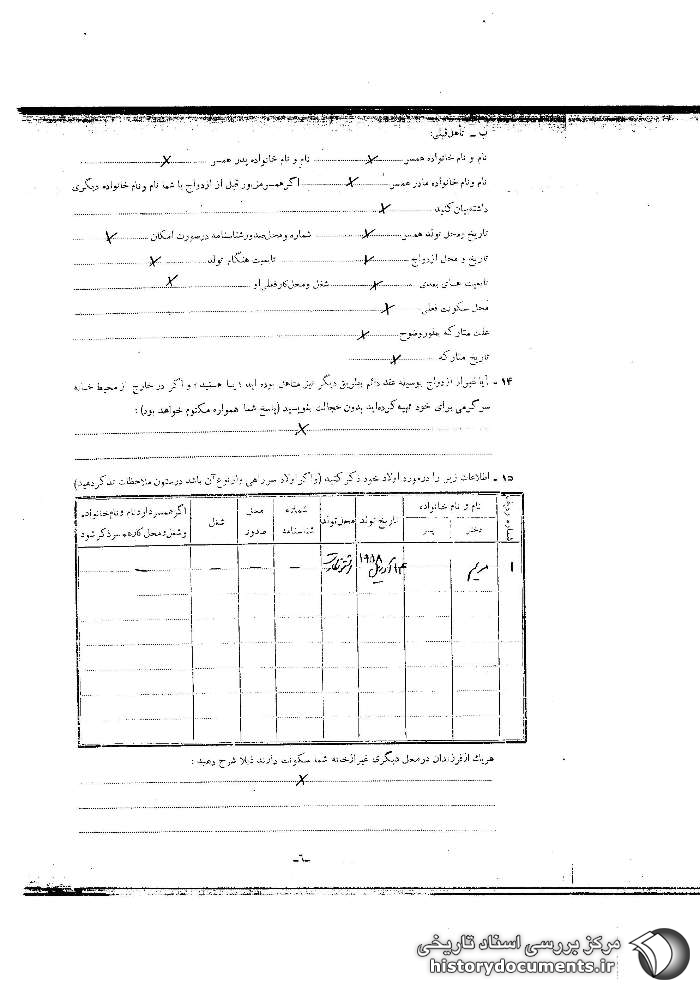 ب ـ تأهل قبلی:
نام و نام خانواده همسر X نام و نام خانواده پدر همسر X
نام ونام خانواده مادر همسر X اگر همسر مزبور قبل از ازدواج با شما نام ونام خانواده دیگری
داشته بیان کنید X
تاریخ ومحل تولد همسر X شماره ومحل صدور شناسنامه در صورت امکان X
تاریخ و محل ازدواج X تابعیت هنگام تولد X
تابعیت های بعدی X شغل ومحل کار فعلی او X
محل سکونت فعلی X
علت متارکه بطور وضوح X
تاریخ متارکه X
۱۴ ـ آیا غیر از ازدواج بوسیله عقد دائم بطریق دیگر نیز متأهل بوده اید ؛ یا هستید ؛ و اگر در خارج از محیط خانه
سرگرمی برای خود تهیه کرده اید بدون خجالت بنویسید (پاسخ شما همواره مکتوم خواهد بود) :
X
۱۵ ـ اطلاعات زیر را در مورد اولاد خود ذکر کنید (واگر اولاد سر راهی وازنوع آن باشد درستون ملاحظات تذکر دهید)
شماره ردیف نام و نام خانواده تاریخ تولد محل تولد شماره شناسنامه محل صدور شغل اگر همسر دارد نام ونام خانواده وشغل ومحل کار همسر ذکر شود
دختر پسر
۱ مریم ۱۴ آوریل ۱۹۶۸ — — — —
هریك ازفرزندان درمحل دیگری غیر ازخانه شما سکونت دارند ذیلا شرح دهید :
X
ـ٦ـ
مرکز بررسی اسناد تاریخی
historydocuments.ir